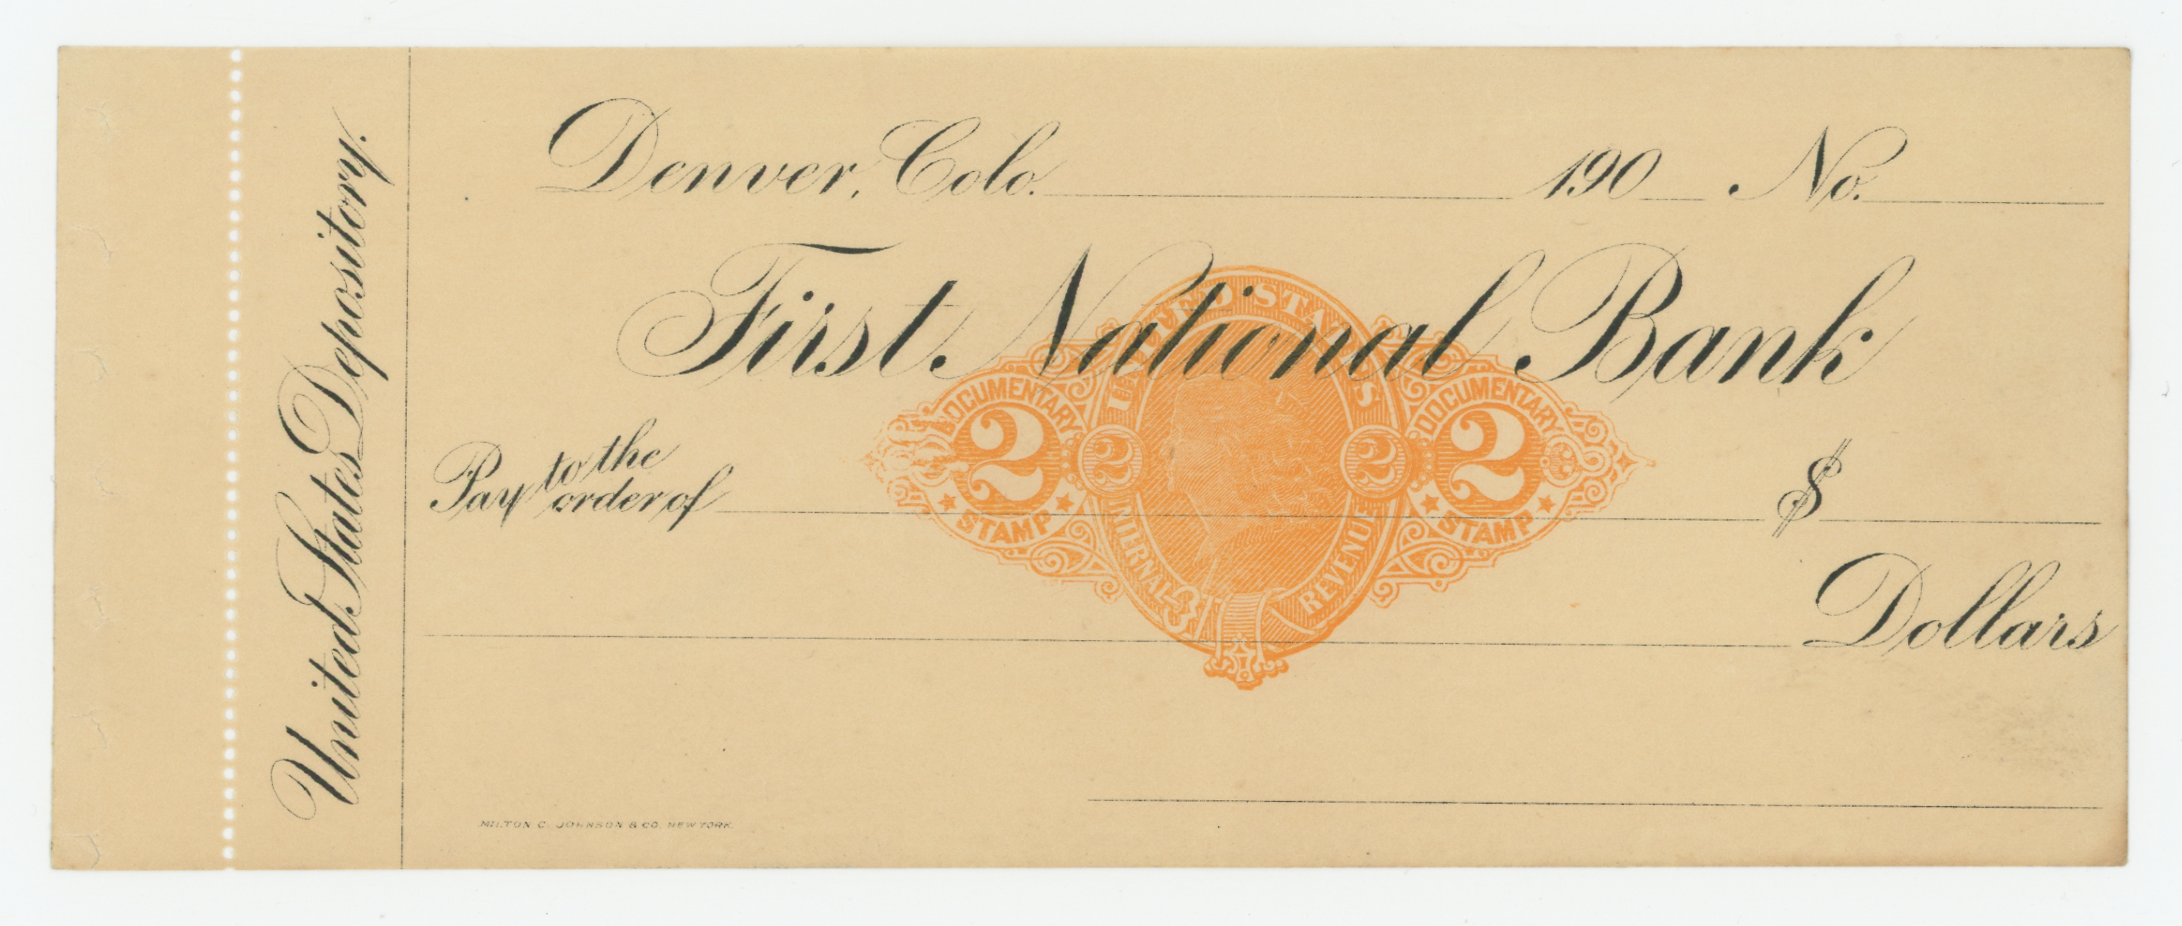 United States Depository.
Denver, Colo. 190 No.
First National Bank
UNITED STATES
DOCUMENTARY DOCUMENTARY
2 2 2 2
STAMP STAMP
INTERNAL REVENUE
Pay to the
order of $
Dollars
MILTON C. JOHNSON & CO. NEW YORK.